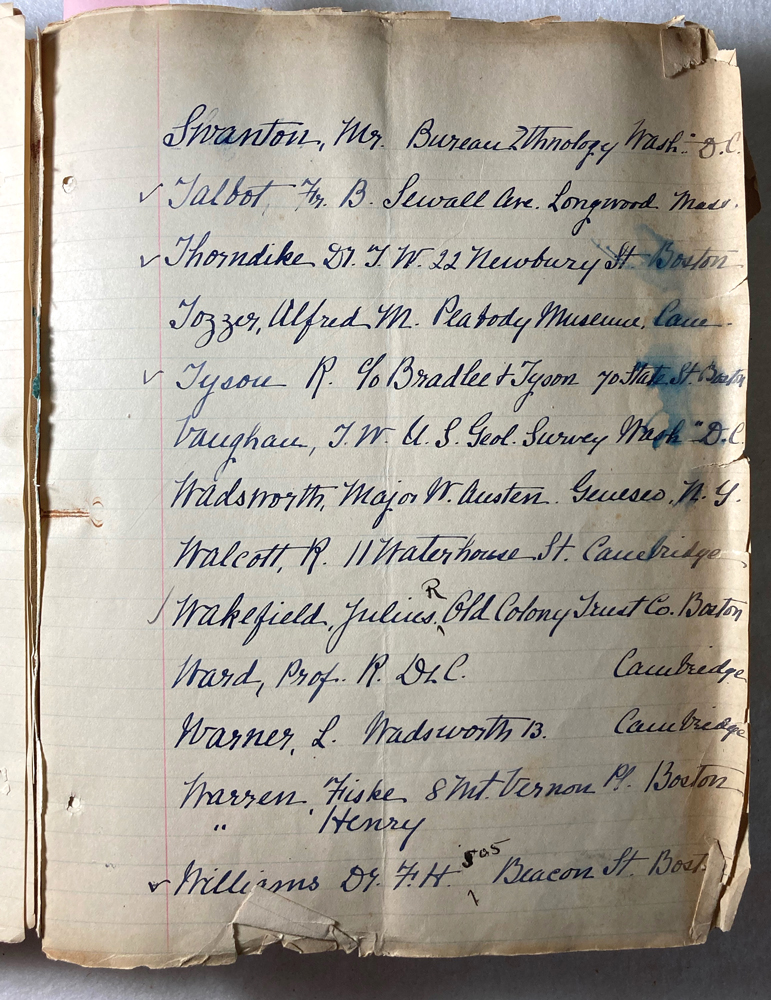 Swanton, Mr. Bureau Ethnology Wash. D.C.
✓ Talbot, Fr. B. Sewall Ave. Longwood Mass.
✓ Thorndike Dr. T. W. 22 Newbury St Boston
Tozzer, Alfred M. Peabody Museum, Cam.
✓ Tyson R. c/o Bradlee & Tyson 70 State St. Boston
Vaughan, T. W. U. S. Geol. Survey Wash. D.C.
Wadsworth, Major W. Austen. Geneseo, N. Y.
Walcott, R. 11 Waterhouse St. Cambridge
/ Wakefield, Julius R. Old Colony Trust Co. Boston
Ward, Prof. R. DeC. Cambridge
Warner, L. Wadsworth 13. Cambridge
Warren, Fiske 8 Mt. Vernon Pl. Boston
" Henry
✓ Williams Dr. F. H. 505 Beacon St. Bost.